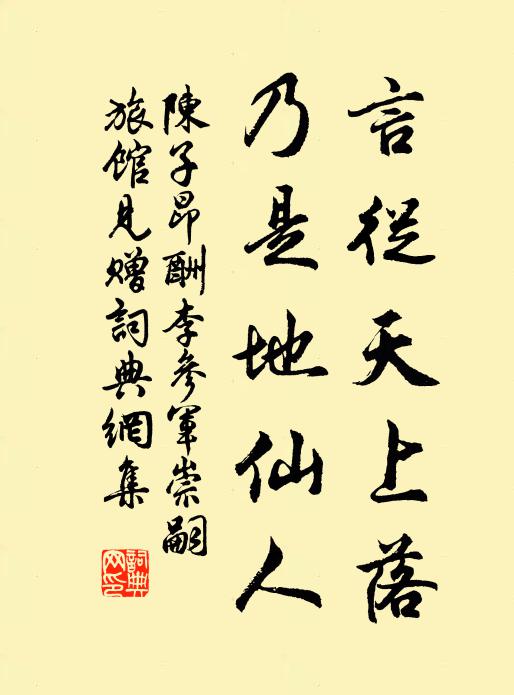 言從天上落
乃是地仙人
陳子昂酬李參軍崇嗣
旅館見贈詞典網集
詞典
网印